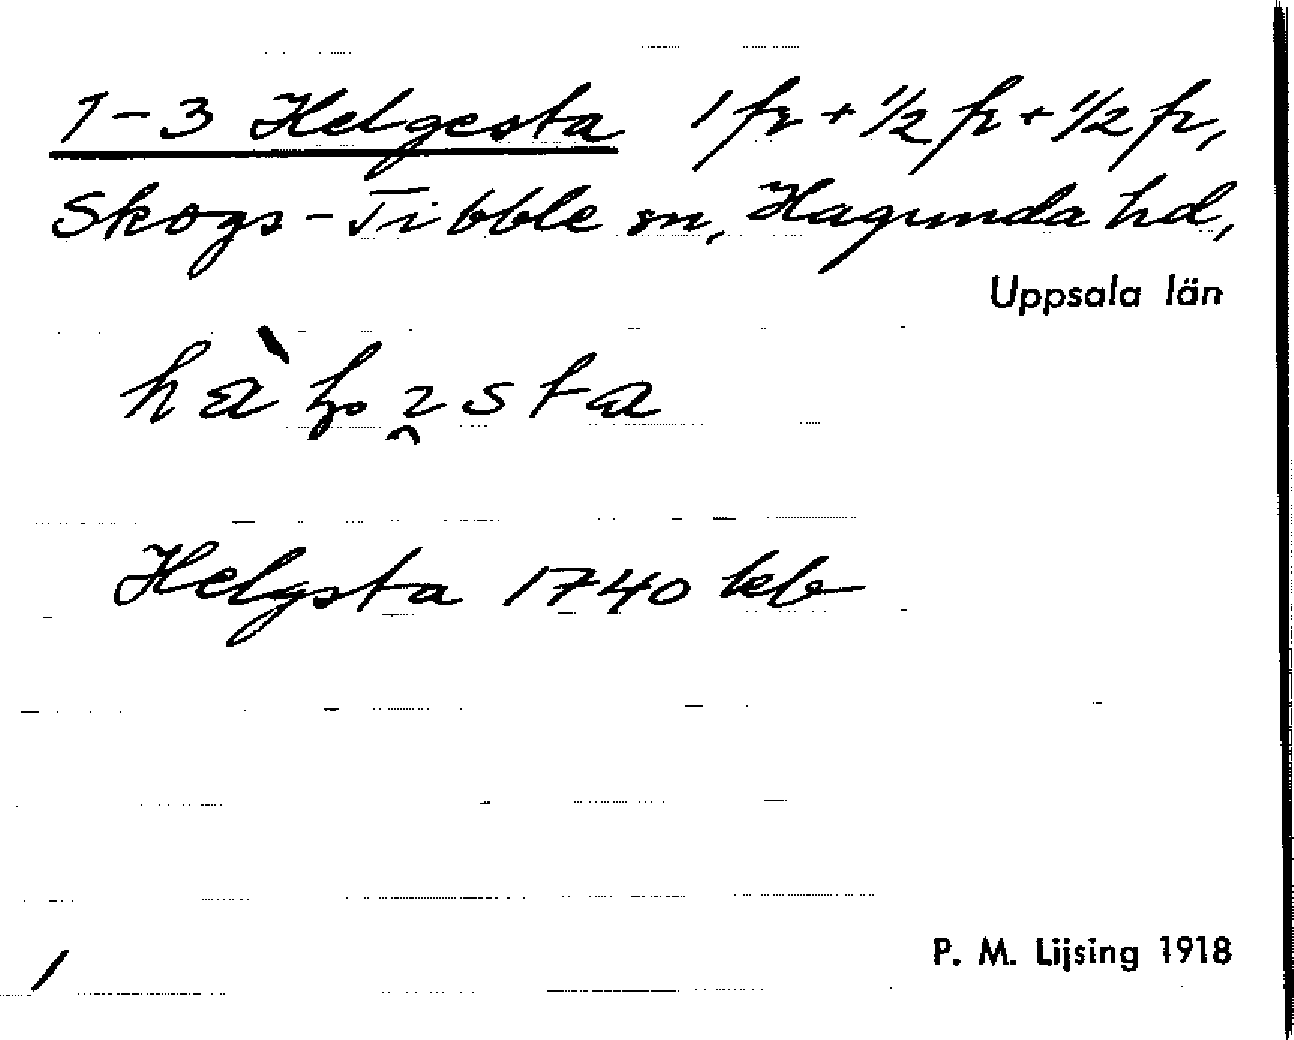 1-3 Helgesta 1 fr + 1/2 fr + 1/2 fr,
Skogs-Tibble sn, Hagunda hd,
Uppsala län
Helgsta 1740 kb
P. M. Lijsing 1918